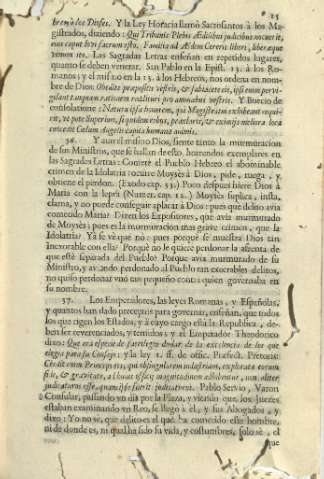 bren à los Dioses. Y la Ley Horacia llamó Sacrosantos à los Ma-
gistrados, diziendo: Qui Tribunis Plebis Ædilibus judicibus nocuerit,
eius caput Iovi sacrum esto, Familia ad Ædem Cereris liberi, liberæque
venum ito. Las Sagradas Letras enseñan en repetidos lugares,
quanto se deben venerar. San Pablo en la Epist. 13. à los Ro-
manos; y el mismo en la 13. à los Hebreos, nos ordena en nom-
bre de Dios: Obedite præpositis vestris, & subiacete eis, ipsi enim pervi-
gilant tamquam rationem reddituri pro animabus vestris. Y Boecio de
36. Y aun el mismo Dios, siente tanto la murmuracion
de sus Ministros, que se hallan desto, horrendos exemplares en
las Sagradas Letras: Comete el Pueblo Hebreo el abominable
crimen de la Idolatria: ocurre Moysès à Dios, pide, ruega, y,
obtiene el perdon. (Exodo cap. 32.) Poco despues hiere Dios à
Maria con la lepra (Numer. cap. 12.) Moysès suplica, insta,
clama, y no puede conseguir aplacar à Dios: pues que delito avia
cometido Maria? Diren los Expositores, que avia murmurado
de Moysès: pues es la murmuracion mas grave crimen, que la
Idolatria? Ya se vè que no: pues porquè se muestra Dios tan
inexorable con ella? Porquè no le quiere perdonar la afrenta de
que estè separada del Pueblo? Porque avia murmurado de su
Ministro, y aviendo perdonado al Pueblo tan execrables delitos,
no quiso perdonar uno tan pequeño contra quien governaba en
su nombre.
37. Los Emperadores, las leyes Romanas, y Españolas,
y quantos han dado preceptos para governar, enseñan, que todos
los que rigen los Estados, y à cuyo cargo està la Republica, de-
ben ser reverenciados, y temidos: y el Emperador Theodorico
dixo: Que era especie de sacrilegio dudar de la excelencia de los que
elegia para su Consejo: y la ley 1. ff. de offic. Præfect. Pretorii:
Credit enim Princeps eos, qui ob singularem industriam, explorata eorum
fide, & gravitate, ad huius officij magnitudinem adhibentur, non aliter
judicaturos esse, quam ipse foret judicaturus. Pablo Servio, Varon
Consular, passando un dia por la Plaza, y viendo que los Juezes
estaban examinando un Reo, se llegò à el, y sus Abogados, y
dixo: Yo no sè, que delito es el que ha cometido este hombre,
ni de donde es, ni qual ha sido su vida, y costumbres, solo sè, el
que